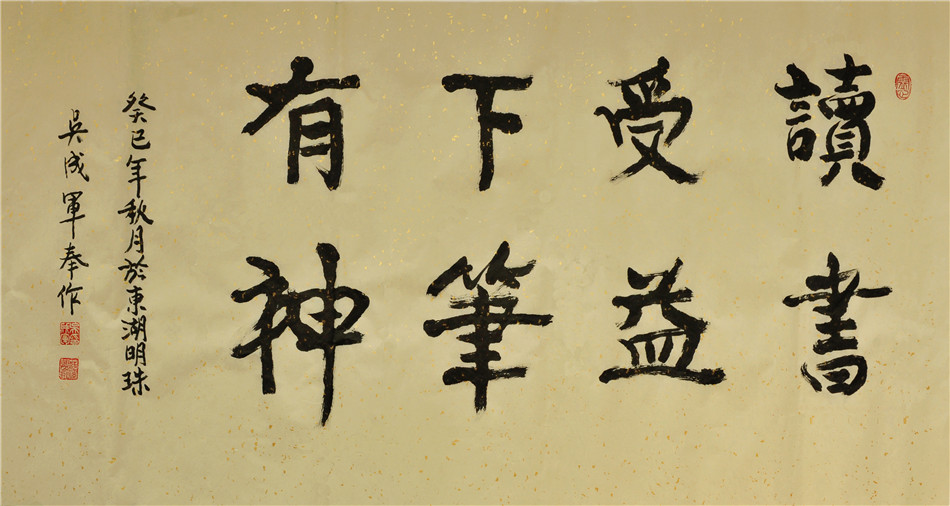 讀書
受益
下筆
有神
癸巳年秋月於東湖明珠
吳成軍奉作